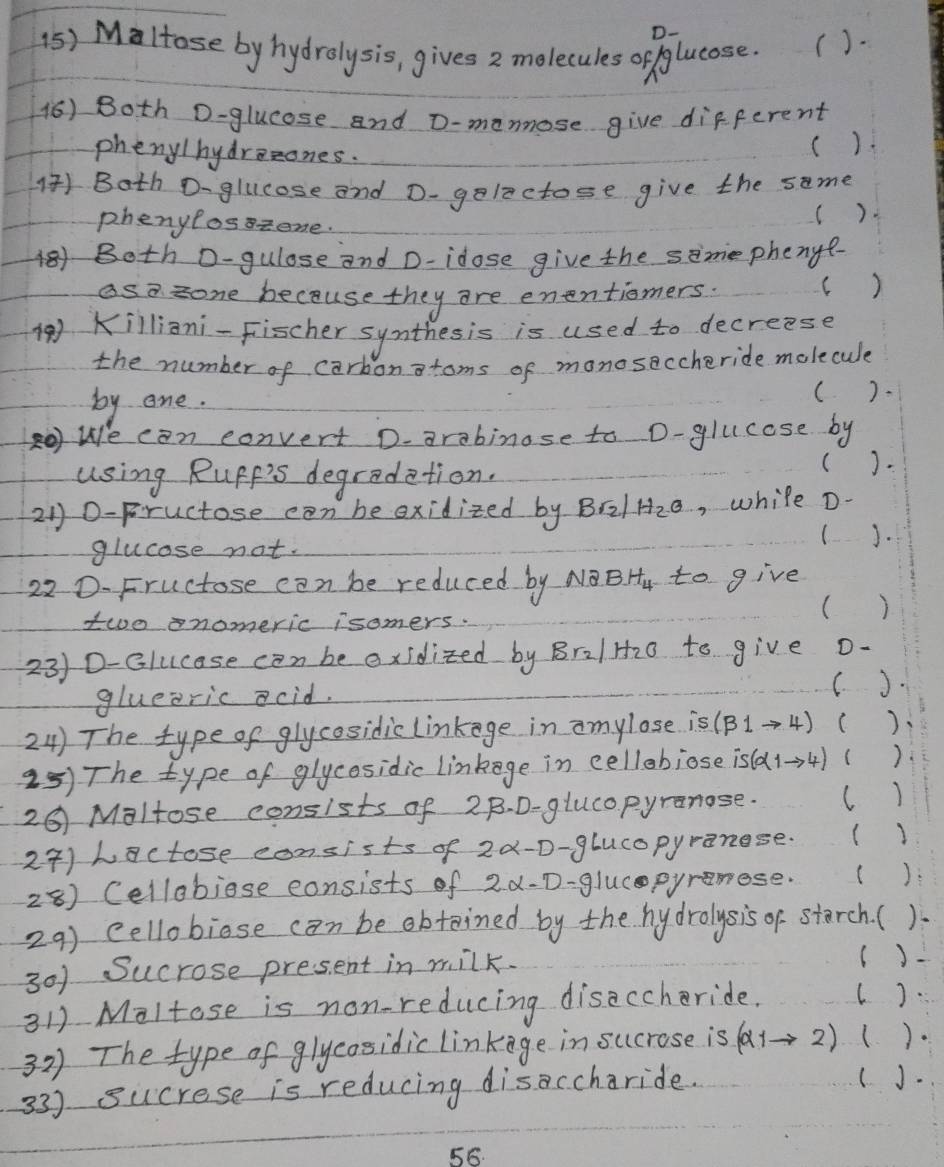 15) Maltose by hydrolysis, gives 2 molecules of D-glucose. ( ).
16) Both D-glucose and D-mannose give different
phenylhydrazones. ( ).
17) Both D-glucose and D-galactose give the same
phenylosazone. ( ).
18) Both D-gulose and D-idose give the same phenyl-
osazone because they are enantiomers. ( )
19) Killiani-Fischer synthesis is used to decrease
the number of carbon atoms of monosaccharide molecule
by one. ( ).
20) We can convert D-arabinose to D-glucose by
using Ruff's degradation. ( ).
21) D-Fructose can be oxidized by Br2/H2O, while D-
glucose not. ( ).
22 D-Fructose can be reduced by NaBH4 to give
two anomeric isomers. ( )
23) D-Glucose can be oxidized by Br2/H2O to give D-
glucaric acid. ( ).
24) The type of glycosidic linkage in amylose is (β1→4) ( ).
25) The type of glycosidic linkage in cellobiose is (α1→4) ( ).
26) Maltose consists of 2β-D-glucopyranose. ( )
27) Lactose consists of 2α-D-glucopyranose. ( )
28) Cellobiose consists of 2α-D-glucopyranose. ( ).
29) Cellobiose can be obtained by the hydrolysis of starch. ( ).
30) Sucrose present in milk. ( ).
31) Maltose is non-reducing disaccharide. ( ).
32) The type of glycosidic linkage in sucrose is (α1→2) ( ).
33) Sucrose is reducing disaccharide. ( ).
56